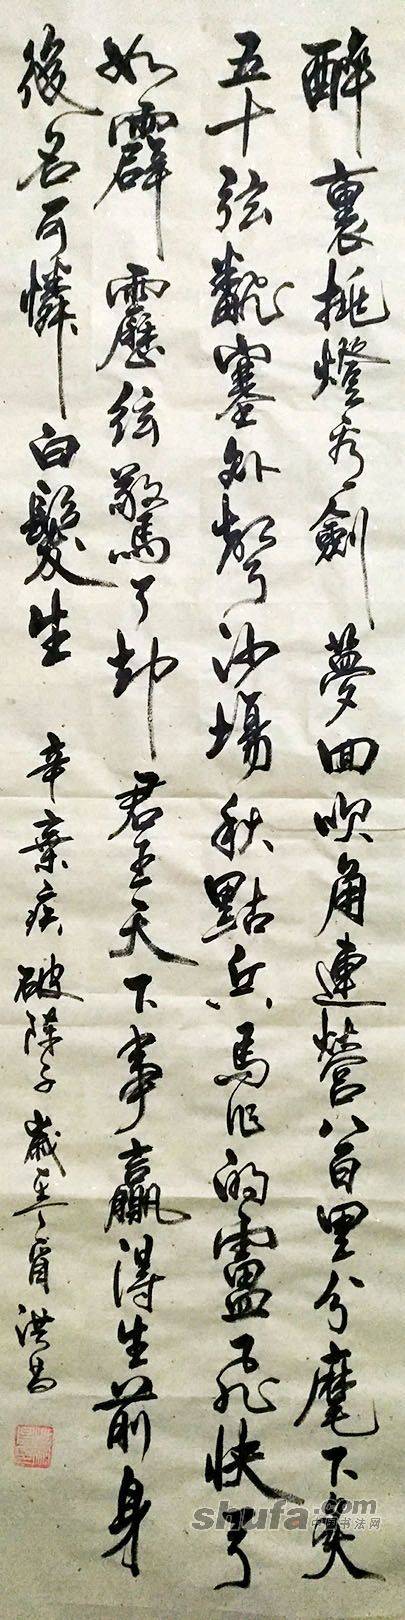 醉裏挑燈看劍夢回吹角連營八百里分麾下炙
五十弦翻塞外聲沙場秋點兵馬作的盧飛快弓
如霹靂弦驚了却君王天下事贏得生前身
後名可憐白髮生 辛棄疾破陣子歲 洪書
shufa.com
中国书法网